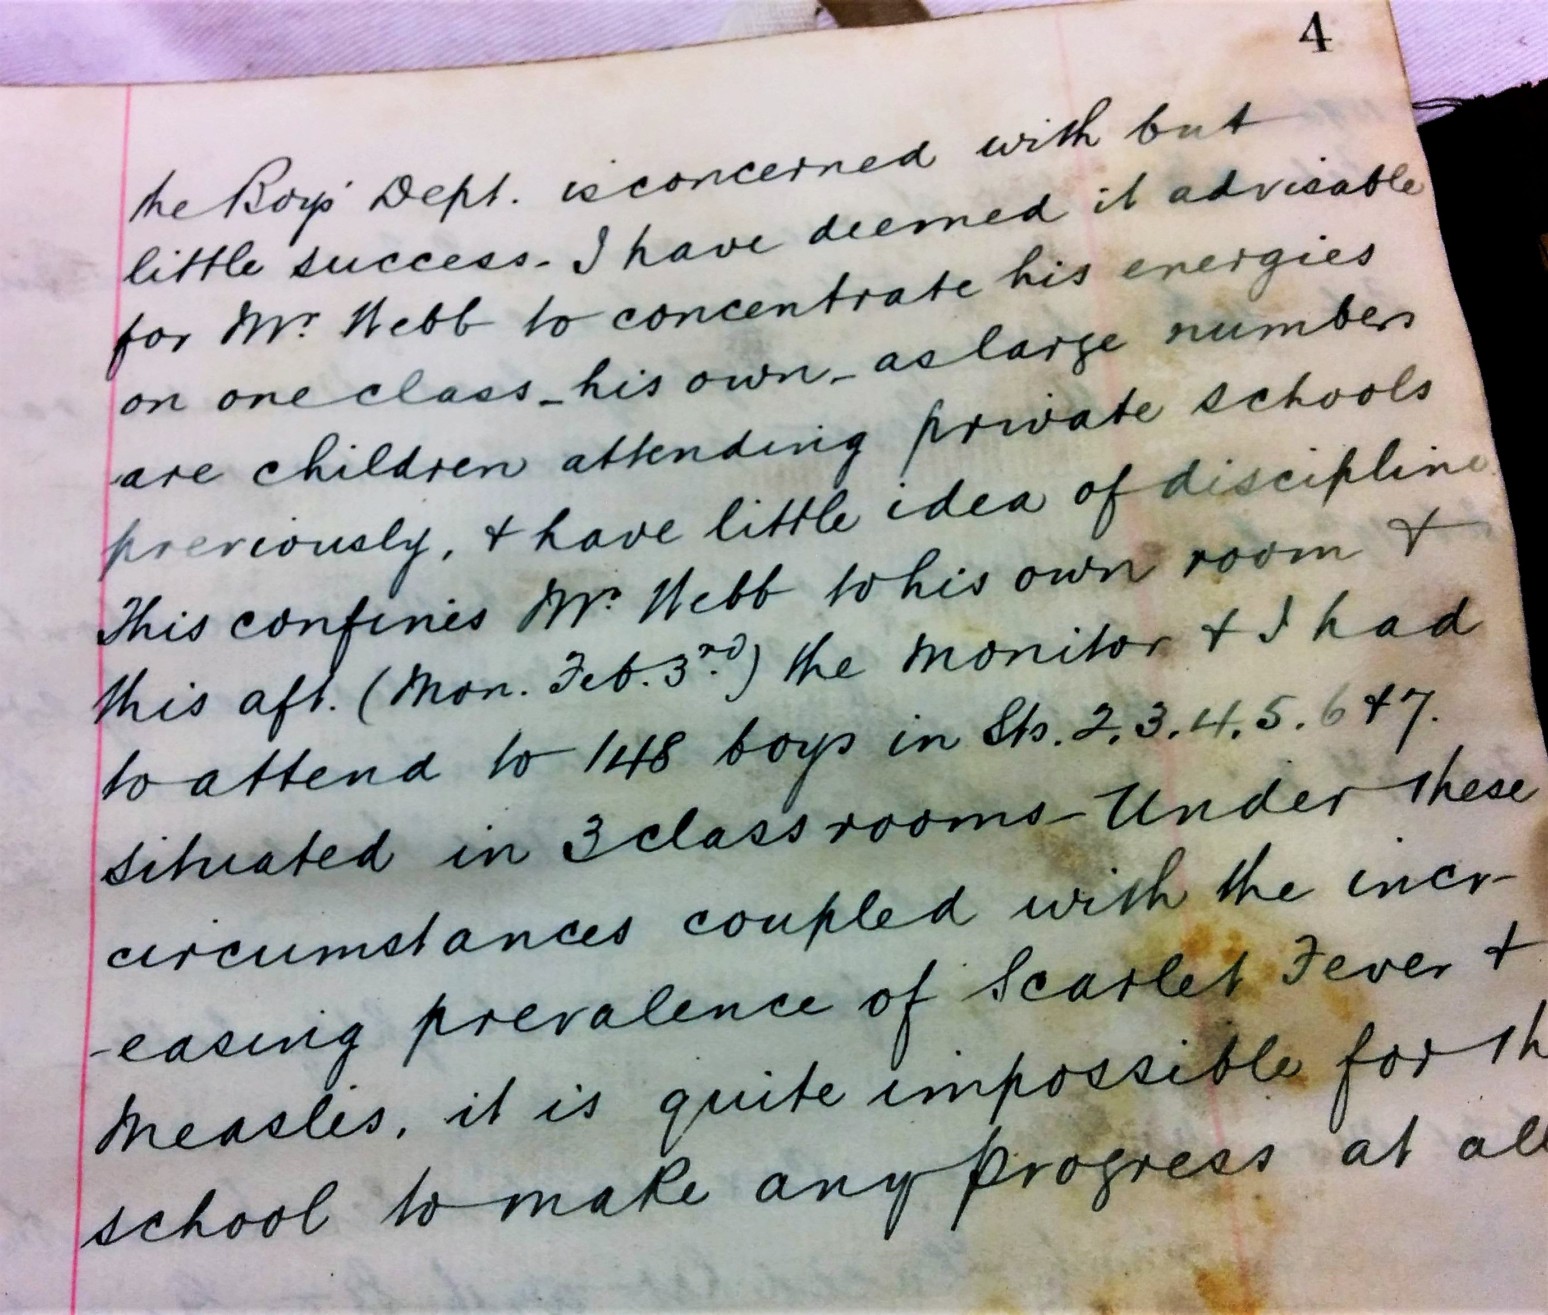 4
the Boys' Dept. is concerned with but
little success - I have deemed it advisable
for Mr. Webb to concentrate his energies
on one class - his own - as large numbers
are children attending private schools
previously, & have little idea of discipline
This confines Mr. Webb to his own room &
this aft. (Mon. Feb. 3rd.) the monitor & I had
to attend to 148 boys in Sts. 2, 3, 4, 5, 6 & 7.
situated in 3 class rooms - Under these
circumstances coupled with the incr-
-easing prevalence of Scarlet Fever &
Measles, it is quite impossible for th
school to make any progress at all